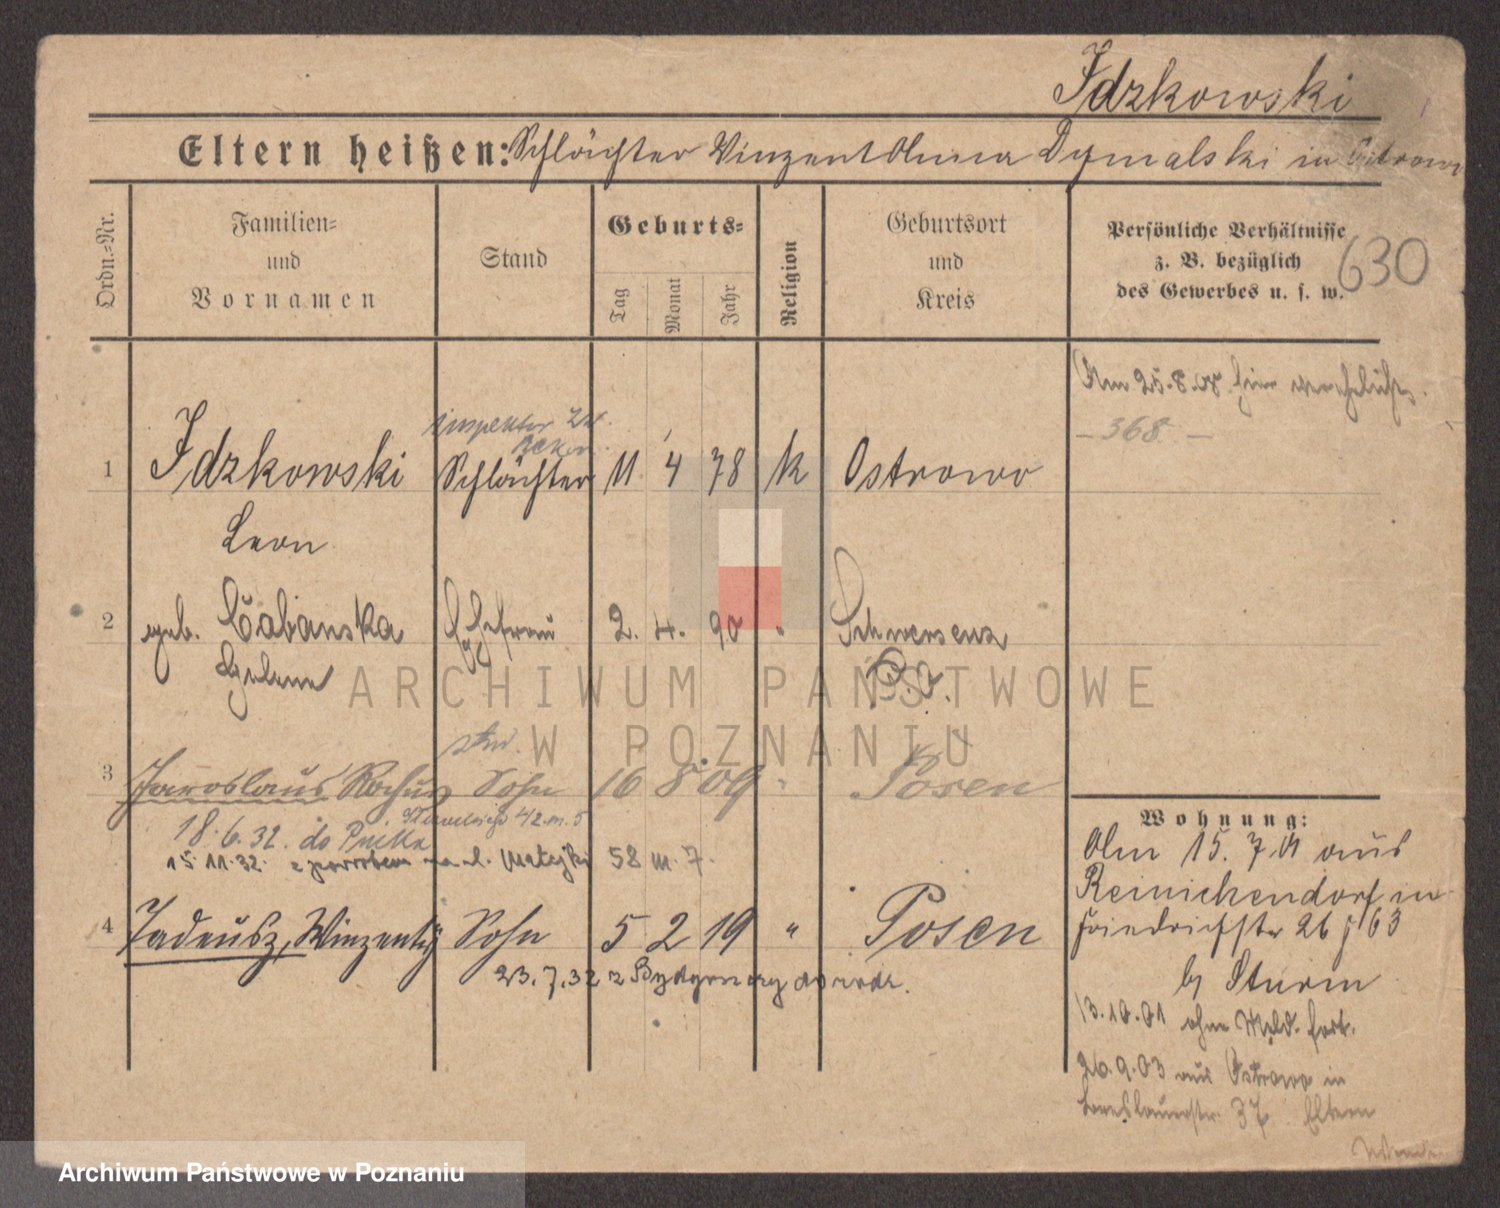 Idzkowski
Eltern heißen: Schlächter Vinzent Anna Dymalski in Ostrowo
Ordn.=Nr.
Familien=
und
Vornamen
Stand
Geburts=
Tag
Monat
Jahr
Religion
Geburtsort
und
Kreis
Persönliche Verhältnisse
z. B. bezüglich
des Gewerbes u. s. w.
630
Am 25.8.08 hier verehelicht.
– 368. –
inspektor
1 Idzkowski Schlächter 11 4 78 k Ostrowo
Leon
2 geb. Čabanska Ehefrau 2. 4. 90 " Schwersenz
Helene P. O.
stud.
3 Jaroslaus Rochus Sohn 16 8 09 " Posen
18.6.32. do Pucka 42 m. 5
15 11 32. z powrotem na ul. Matejki 58 m. 7.
4 Tadeusz, Winzenty Sohn 5 2 19 " Posen
23.7.32 z Bydgoszczy do rodz.
Wohnung:
Am 15. 7. 01 aus
Reinickendorf in
Friedrichstr 26 63
b/ Sturm
13.10.01 ohne Meld. fort.
26.9.03 aus Ostrowo in
37 Eltern
Wenden
ARCHIWUM PAŃSTWOWE
W POZNANIU
Archiwum Państwowe w Poznaniu